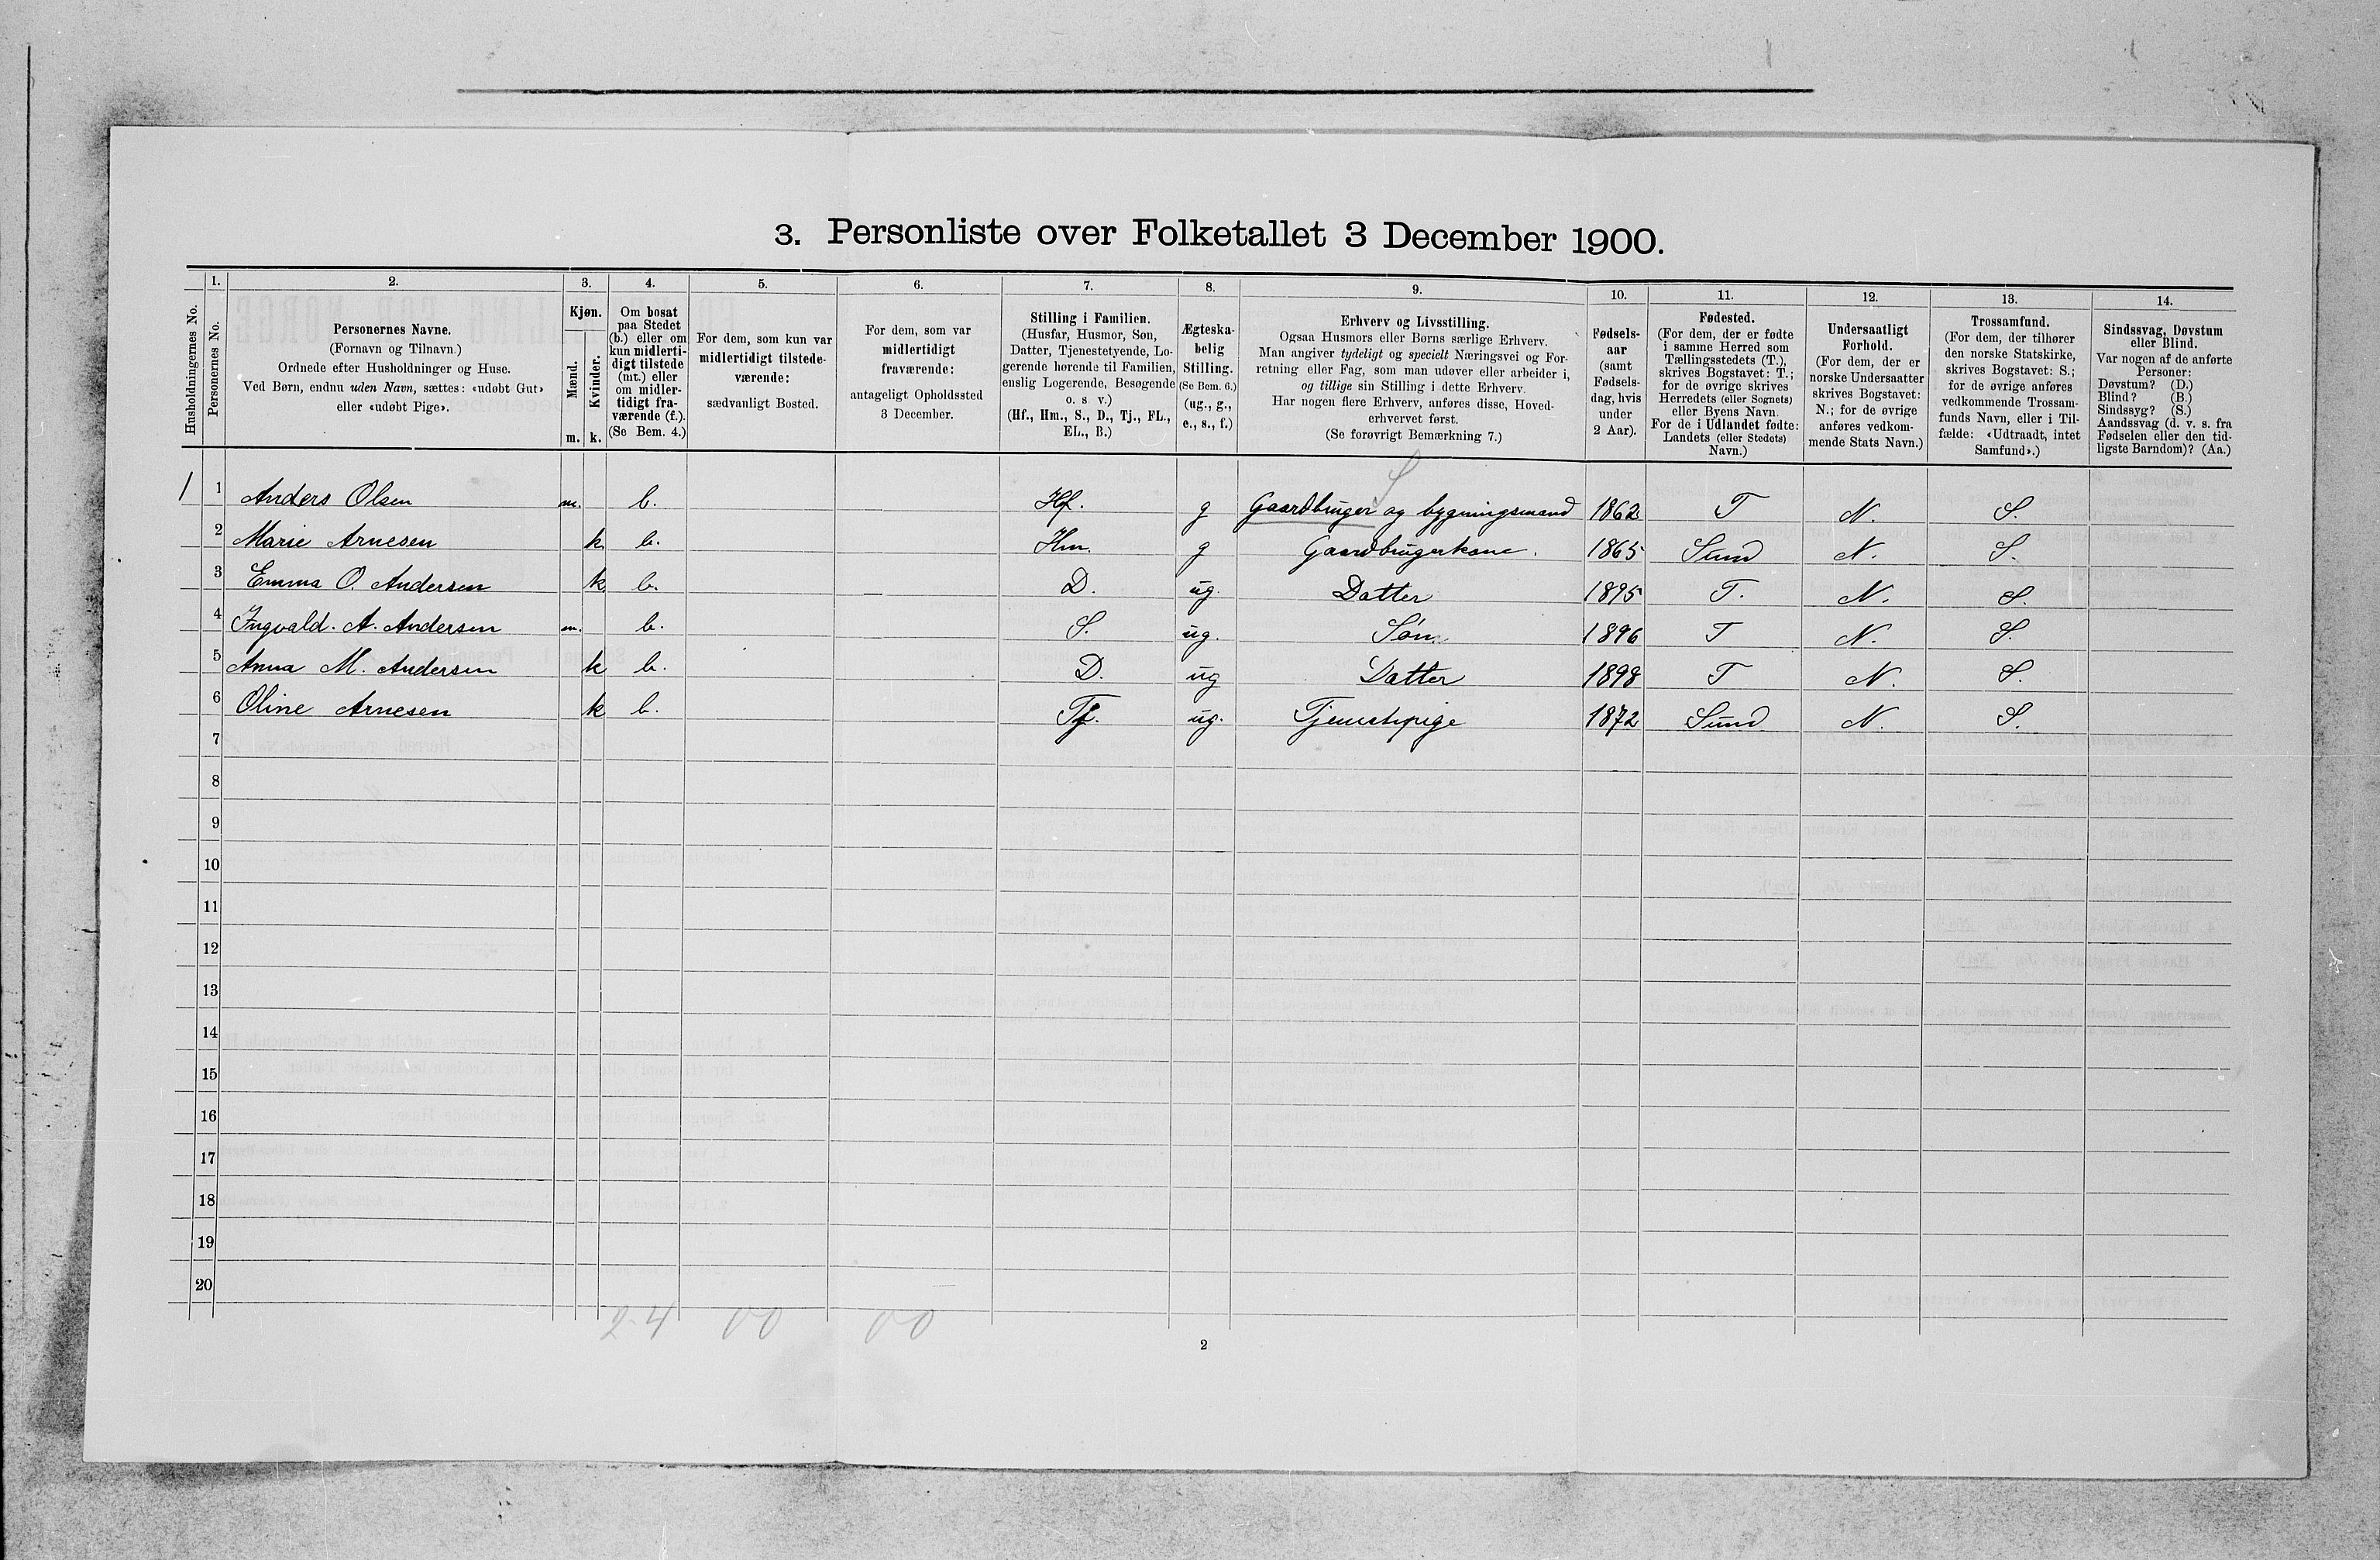 3. Personliste over Folketallet 3 December 1900.
Husholdningernes No.
1.
Personernes No.
2.
Personernes Navne.
(Fornavn og Tilnavn.)
Ordnede efter Husholdninger og Huse.
Ved Børn, endnu uden Navn, sættes: «udøbt Gut»
eller «udøbt Pige».
3.
Kjøn.
Mænd.
Kvinder.
m. k.
4.
Om bosat
paa Stedet
(b.) eller om
kun midlerti-
digt tilstede
(mt.) eller
om midler-
tidigt fra-
værende (f.).
(Se Bem. 4.)
5.
For dem, som kun var
midlertidigt tilstede-
værende:
sædvanligt Bosted.
6.
For dem, som var
midlertidigt
fraværende:
antageligt Opholdssted
3 December.
7.
Stilling i Familien.
(Husfar, Husmor, Søn,
Datter, Tjenestetyende, Lo-
gerende hørende til Familien,
enslig Logerende, Besøgende
o. s. v.)
(Hf., Hm., S., D., Tj., FL.,
EL., B.)
8.
Ægteska-
belig
Stilling.
(Se Bem. 6.)
(ug., g.,
e., s., f.)
9.
Erhverv og Livsstilling.
Ogsaa Husmors eller Børns særlige Erhverv.
Man angiver tydeligt og specielt Næringsvei og For-
retning eller Fag, som man udøver eller arbeider i,
og tillige sin Stilling i dette Erhverv.
Har nogen flere Erhverv, anføres disse, Hoved-
erhvervet først.
(Se forøvrigt Bemærkning 7.)
10.
Fødsels-
aar
(samt
Fødsels-
dag, hvis
under
2 Aar).
11.
Fødested.
(For dem, der er fødte
i samme Herred som
Tællingsstedets (T.),
skrives Bogstavet: T.;
for de øvrige skrives
Herredets (eller Sognets)
eller Byens Navn.
For de i Udlandet fødte:
Landets (eller Stedets)
Navn.)
12.
Undersaatligt
Forhold.
(For dem, der er
norske Undersaatter
skrives Bogstavet:
N.; for de øvrige
anføres vedkom-
mende Stats Navn.)
13.
Trossamfund.
(For dem, der tilhører
den norske Statskirke,
skrives Bogstavet: S.;
for de øvrige anføres
vedkommende Trossam-
funds Navn, eller i Til-
fælde: «Udtraadt, intet
Samfund».)
14.
Sindssvag, Døvstum
eller Blind.
Var nogen af de anførte
Personer:
Døvstum? (D.)
Blind? (B.)
Sindssyg? (S.)
Aandssvag (d. v. s. fra
Fødselen eller den tid-
ligste Barndom)? (Aa.)
S
1 1 Anders Olsen m. b. Hf. g Gaardbruger og bygningsmand 1862 T N. S.
2 Marie Arnesen k b. Hm. g Gaardbrugerkone. 1865 Sund N. S.
3 Emma O. Andersen k b. — D. ug. Datter 1895 T. N. S.
4 Ingvald. A. Andersen m. b. S. ug. Søn 1896 T N. S.
5 Anna M. Andersen k b. D. ug Datter 1898 T N. S.
6 Oline Arnesen k b. Tj. ug. Tjenestepige 1872 Sund N. S.
7
8
9
10
11
12
13
14
15
16
17
18
19
20
2-4 00 00
2